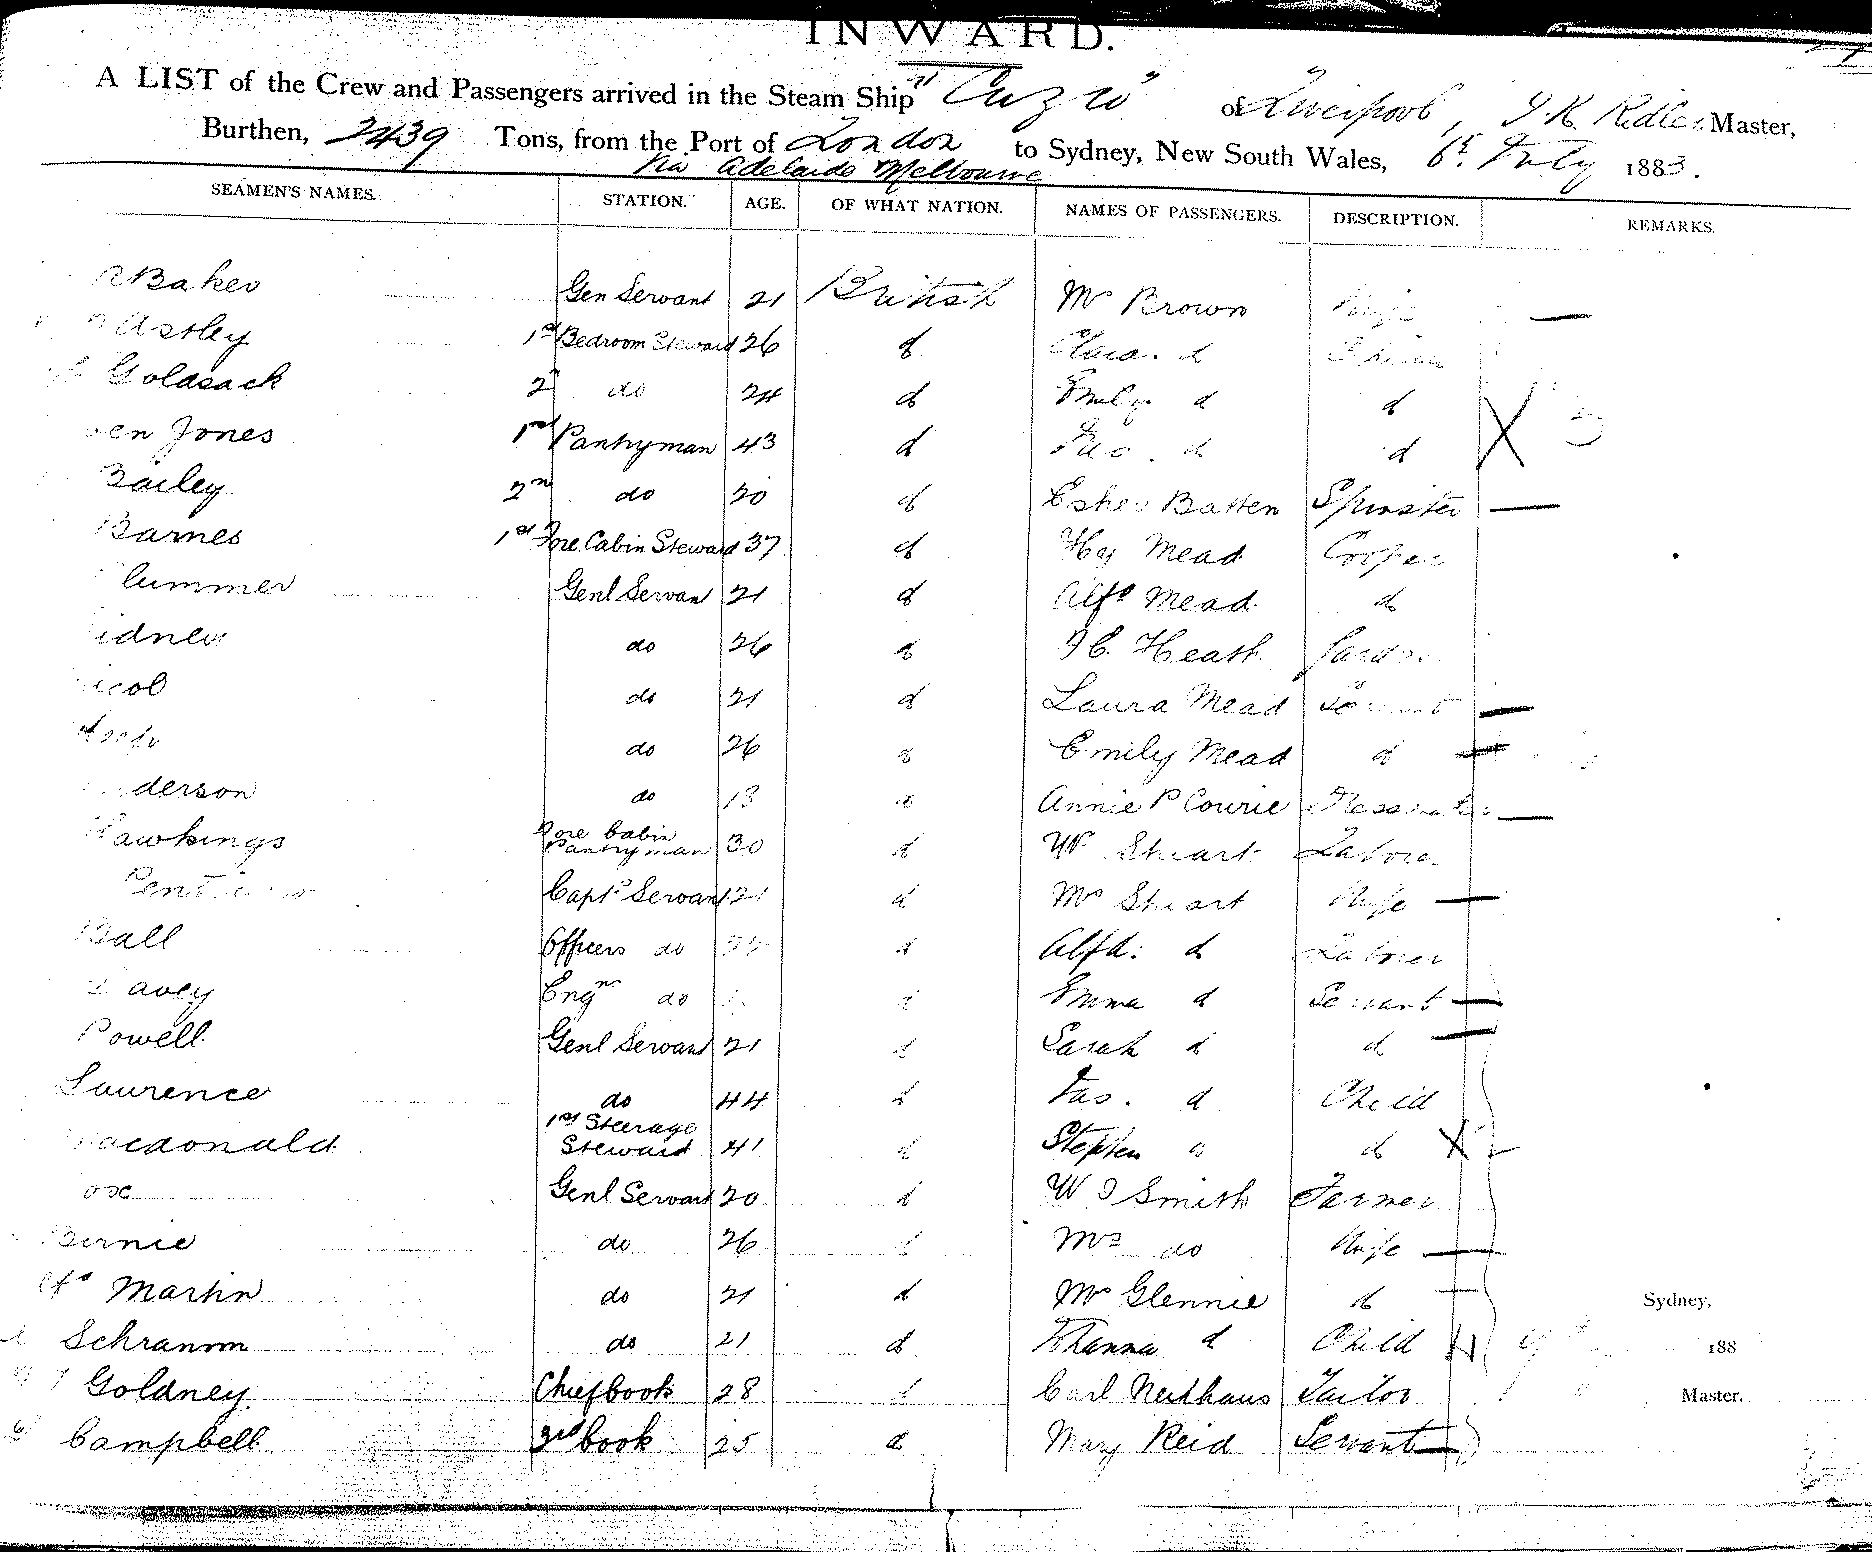 INWARD.
A LIST of the Crew and Passengers arrived in the Steam Ship "Cuzco" of Liverpool, J.K. Ridler Master,
Burthen, 2439 Tons, from the Port of London to Sydney, New South Wales, 6th July 1883.
Via Adelaide Melbourne
SEAMEN'S NAMES. STATION. AGE. OF WHAT NATION. NAMES OF PASSENGERS. DESCRIPTION. REMARKS.
Baker Gen Servant 21 British Mrs Brown Wife —
Astley 1st Bedroom Steward 26 d Clara d
Goldsack 2d do 24 d Emily d d
Jones 1st Pantryman 43 d d d X 3
Bailey 2nd do 20 d Esher Batten Spinster —
Barnes 1st Fore Cabin Steward 37 d Hy Mead Cooper
lummer Genl Servan 21 d Alfd Mead d
idney do 26 d Heath
icol do 21 d Laura Mead Servant —
do 26 d Emily Mead d —
derson do 13 d Annie P Courie —
Hawkings Fore Cabin Pantryman 30 d W Stuart Labour
Capts Servant 21 d Mrs Stuart Wife —
Ball Officers do d Alfd: d Labourer
avey Engrs do d Emma d Servant —
Powell Genl Servant 21 d Sarah d d —
Laurence do 44 d Jas. d Child
Macdonald 1st Steerage Steward 41 d Stephen d d X 2
Genl Servant 20 d W J Smith Farmer
Birnie do 26 d Mrs do Wife —
Martin do 21 d Mrs Glennie d —
Sydney,
Schramm do 21 d Johanna d Child
188
Goldney Chief Cook 28 d Carl Neuthaus Tailor
Master.
Campbell 3rd Cook 25 d Mary Reid Servant —